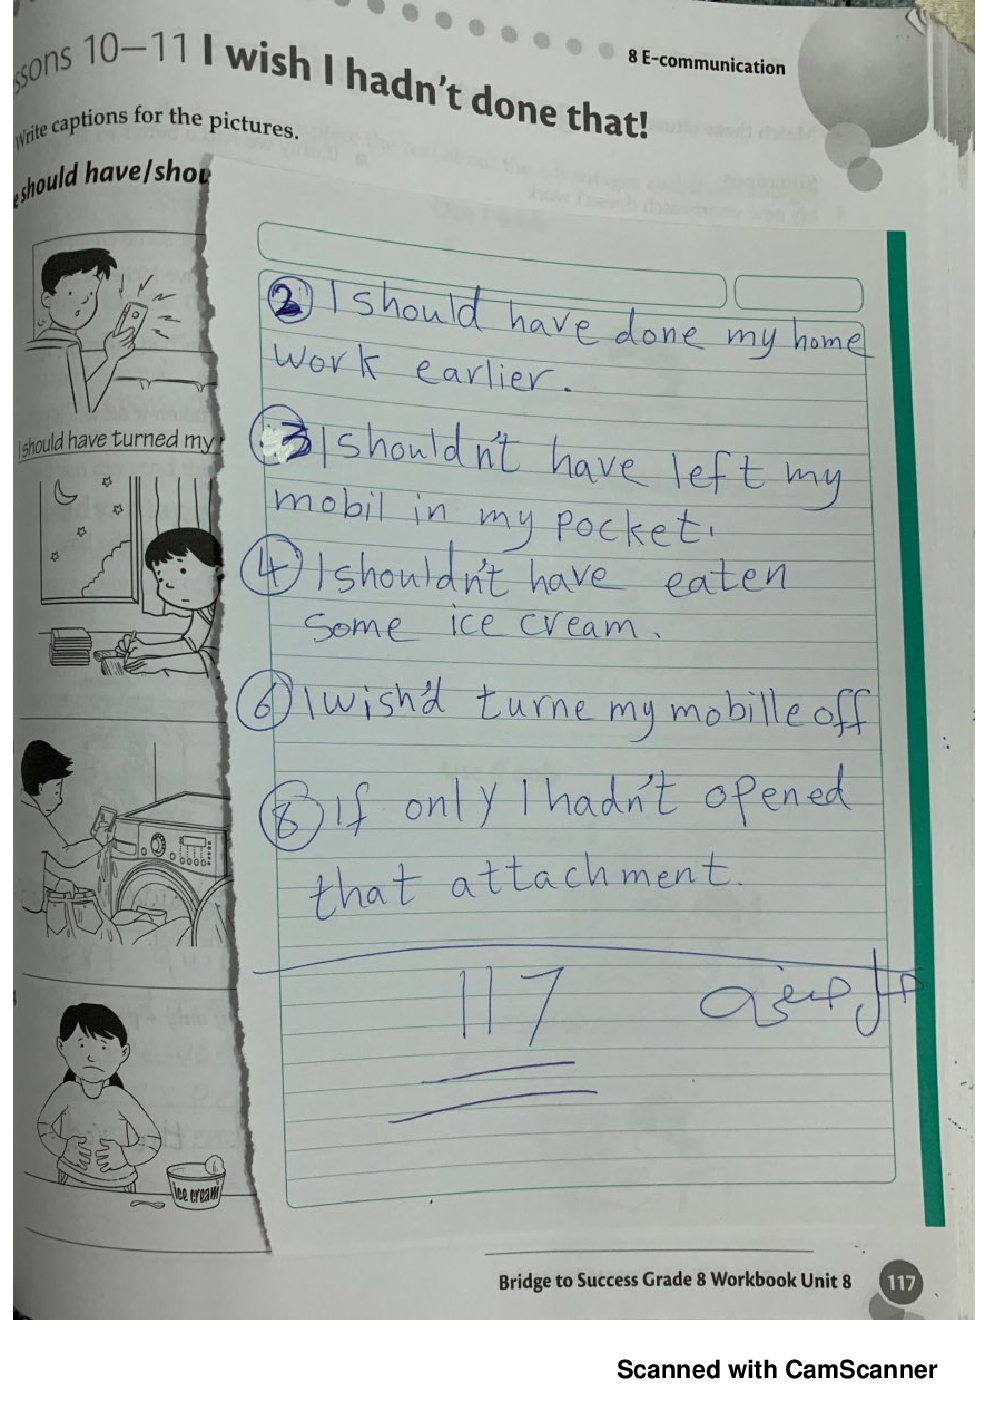 8 E-communication
ssons 10–11 I wish I hadn't done that!
Write captions for the pictures.
e should have/shou
I should have turned my
② I should have done my home
work earlier.
③ I shouldn't have left my
mobil in my pocket.
④ I shouldn't have eaten
some ice cream.
⑥ I wish'd turne my mobille off
⑧ If only I hadn't opened
that attachment.
117
ice cream
Bridge to Success Grade 8 Workbook Unit 8 117
Scanned with CamScanner